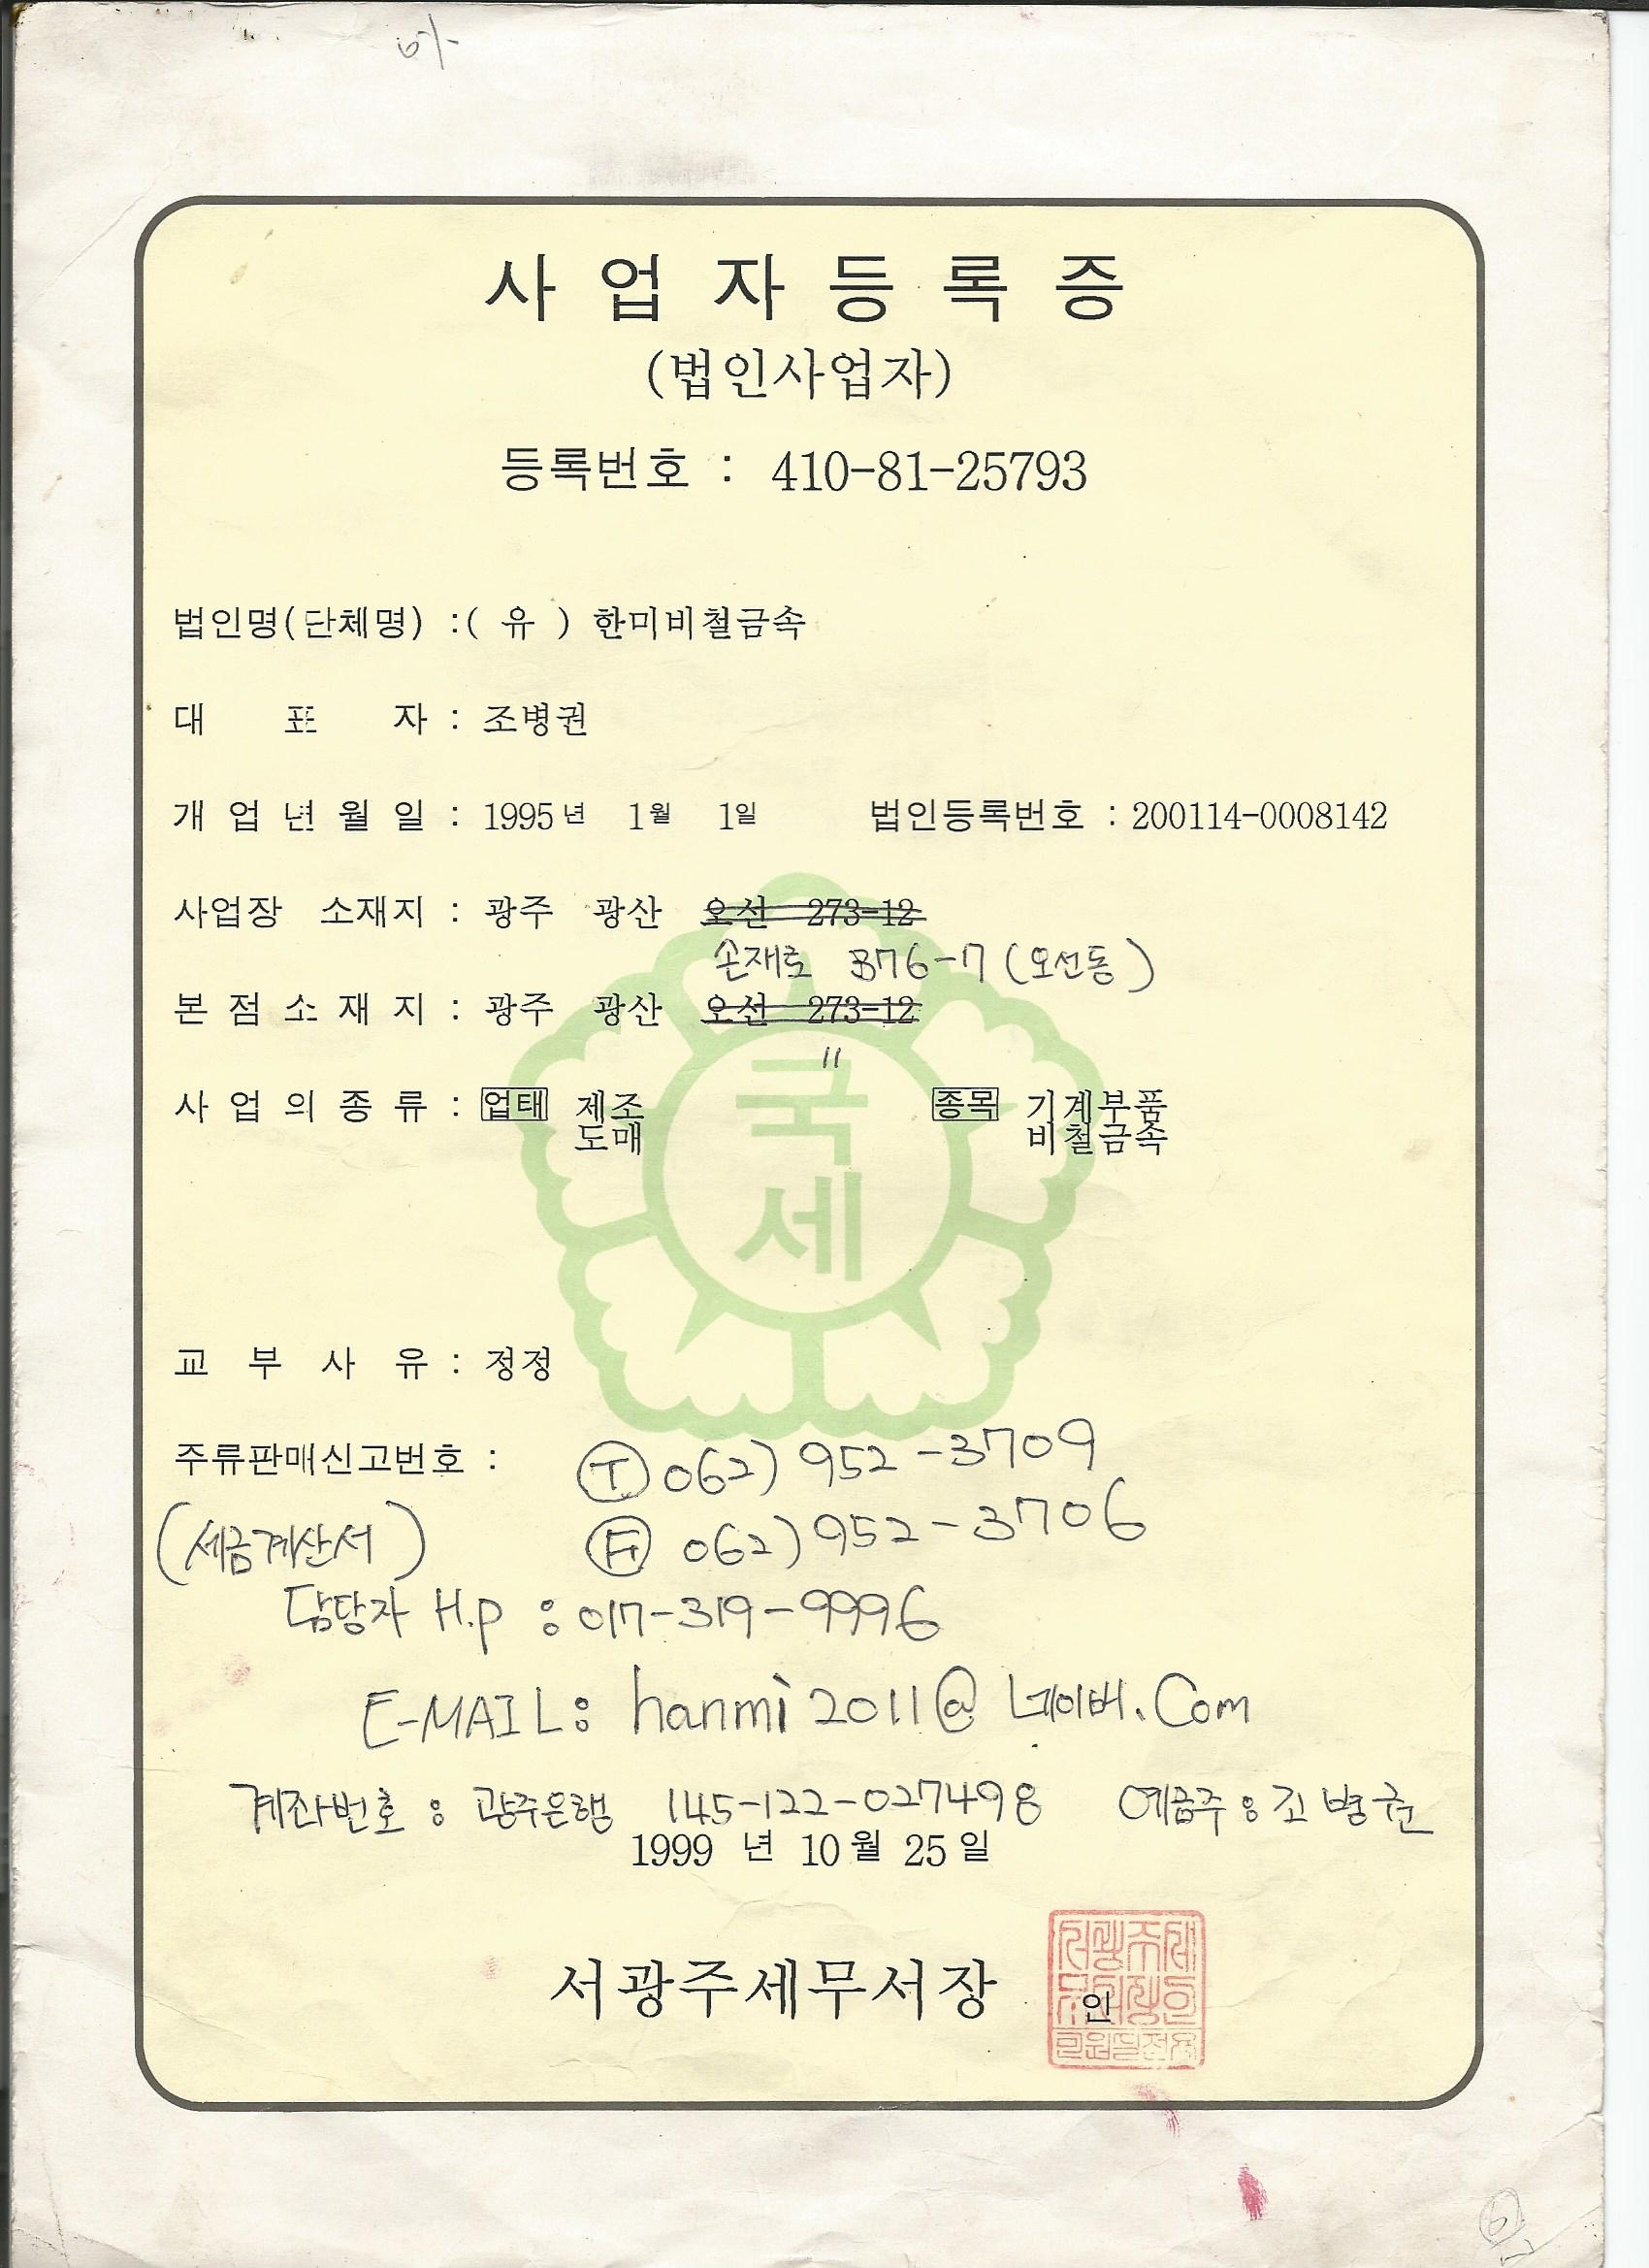 사 업 자 등 록 증
(법인사업자)
등록번호 : 410-81-25793
법인명(단체명) :( 유 ) 한미비철금속
대 표 자 : 조병권
개 업 년 월 일 : 1995년 1월 1일 법인등록번호 : 200114-0008142
사업장 소재지 : 광주 광산 오선 273-12
손재로 376-7 (오선동)
본 점 소 재 지 : 광주 광산 오선 273-12
〃
국
세
사 업 의 종 류 : 업태 제조 종목 기계부품
도매 비철금속
교 부 사 유 : 정정
주류판매신고번호 : Ⓣ 062) 952-3709
(세금계산서) Ⓕ 062) 952-3706
담당자 H.p : 017-319-9996
E-MAIL: hanmi2011@네이버.Com
계좌번호 : 광주은행 145-122-027498 예금주 : 조병권
1999 년 10 월 25 일
서광주세무서장 인